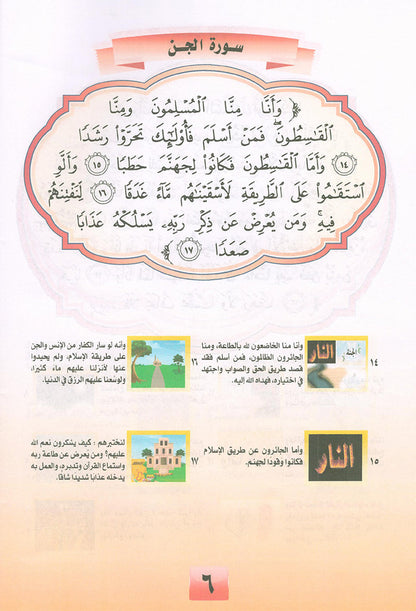 سورة الجن
﴿ وَأَنَّا مِنَّا الْمُسْلِمُونَ وَمِنَّا
الْقَاسِطُونَ ۖ فَمَنْ أَسْلَمَ فَأُولَٰئِكَ تَحَرَّوْا رَشَدًا
﴿١٤﴾ وَأَمَّا الْقَاسِطُونَ فَكَانُوا لِجَهَنَّمَ حَطَبًا ﴿١٥﴾ وَأَلَّوِ
اسْتَقَامُوا عَلَى الطَّرِيقَةِ لَأَسْقَيْنَاهُم مَّاءً غَدَقًا ﴿١٦﴾ لِّنَفْتِنَهُمْ
فِيهِ ۚ وَمَن يُعْرِضْ عَن ذِكْرِ رَبِّهِ يَسْلُكْهُ عَذَابًا
صَعَدًا ﴿١٧﴾ ﴾
الجنة
النار
١٤
وأنا منا الخاضعون لله بالطاعة، ومنا
الجائرون الظالمون، فمن أسلم فقد
قصد طريق الحق والصواب واجتهد
في اختياره، فهداه الله إليه.
١٦
وأنه لو سار الكفار من الإنس والجن
على طريقة الإسلام، ولم يحيدوا
عنها لأنزلنا عليهم ماء كثيرا،
ولوسَّعنا عليهم الرزق في الدنيا.
النار
١٥
وأما الجائرون عن طريق الإسلام
فكانوا وقودا لجهنم.
١٧
لنختبرهم : كيف يشكرون نعم الله
عليهم؟ ومن يُعرض عن طاعة ربه
واستماع القرآن وتدبره، والعمل به
يدخله عذابا شديدا شاقا.
٦